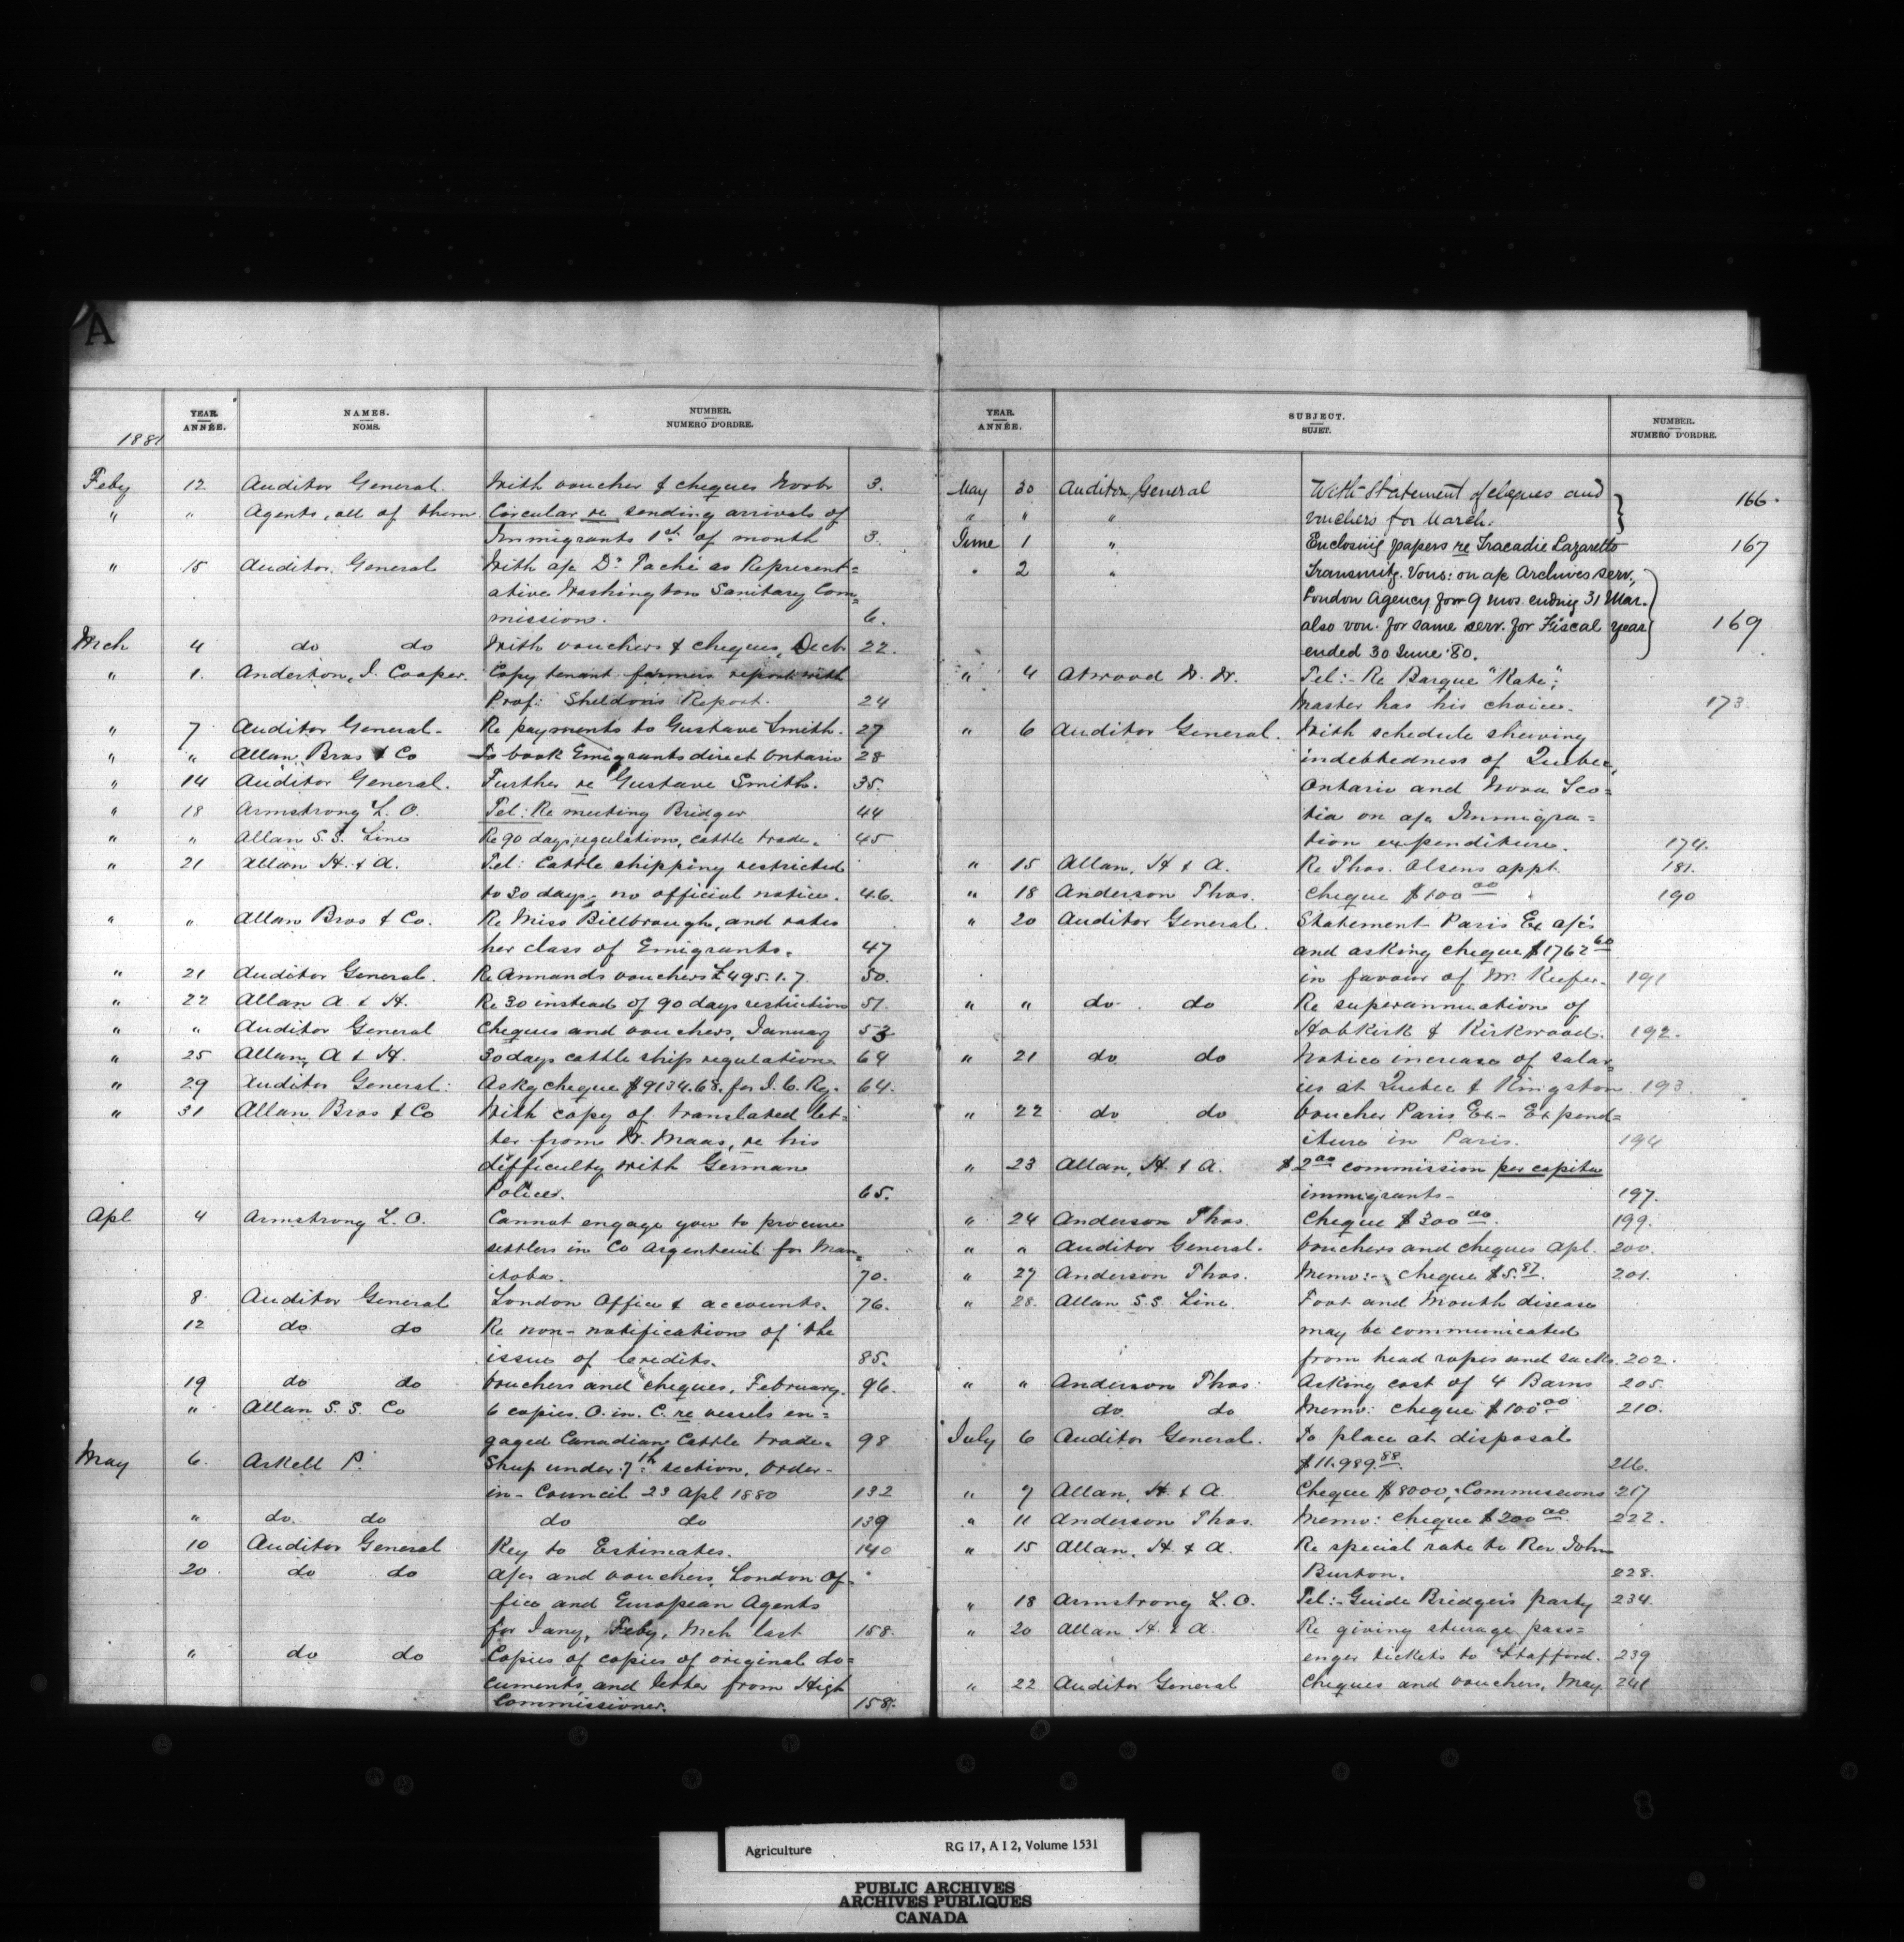 A
YEAR. ANNÉE.
NAMES. NOMS.
NUMBER. NUMERO D'ORDRE.
1881
Feby 12 Auditor General. With voucher & cheques Novbr 3.
" " Agents, all of them. Circular re sending arrivals of
Immigrants 1st of month 3.
" 15 Auditor General With a/c Dr Taché as Represent=
ative Washington Sanitary Com=
mission. 6.
Mch 4 do do With vouchers & cheques, Decb 22.
" 1. Anderton, J. Cooper. Copy tenant farmers report with
Prof: Sheldon's Report. 24
" 7 Auditor General. Re payments to Gustave Smith. 27
" " Allan Bros & Co To book Emigrants direct Ontario 28
" 14 Auditor General. Further re Gustave Smith. 35.
" 18 Armstrong L. O. Tel: Re meeting Bridger 44
" " Allan S.S. Line Re 90 days regulation, cattle trade. 45
" 21 Allan H. & A. Tel: Cattle shipping restricted
to 30 days, no official notice. 46.
" " Allan Bros & Co. Re Miss Billbrough, and rates
her class of Emigrants. 47
" 21 Auditor General. Re Annands vouchers £495.1.7. 50.
" 22 Allan A. & H. Re 30 instead of 90 days restriction 51.
" " Auditor General Cheques and vouchers, January 53
" 25 Allan, A & H. 30 days cattle ship regulation 64
" 29 Auditor General: Askg cheque $9134.68. for I. C. Ry. 64.
" 31 Allan Bros & Co With copy of translated let=
ter from W. Maas, re his
difficulty with German
Police. 65.
Apl 4 Armstrong L. O. Cannot engage you to procure
settlers in Co Argenteuil for Man=
itoba. 70.
8 Auditor General London Office & accounts. 76.
12 do do Re non-notification of the
issue of Credits. 85.
19 do do Vouchers and cheques, February. 96.
" Allan S. S. Co 6 copies O. in. C. re vessels en=
gaged Canadian Cattle trade. 98
May 6. Askell P. Shup under 7th section, Order-
in-Council 23 Apl 1880 132
" do do do do 139
10 Auditor General Key to Estimates. 140
20 do do A/cs and vouchers, London Of-
fice and European Agents
for Jany, Feby, Mch last 158.
" do do Copies of copies of original do=
cuments, and letter from High
Commissioner. 158.
YEAR. ANNÉE.
SUBJECT. SUJET.
NUMBER. NUMERO D'ORDRE.
May 30 Auditor General With Statement of cheques and
" " " vouchers for March. 166.
June 1 " Enclosing papers re Tracadie Lazaretto 167
. 2 " Transmitg. Vous: on a/c Archives serv.,
London Agency for 9 mos. ending 31 Mar.
also vou. for same serv. for Fiscal year 169
ended 30 June '80.
" 4 Atwood Tel:- Re Barque "Kate";
Master has his choice. 173
" 6 Auditor General. With schedule shewing
indebtedness of Quebec,
Ontario and Nova Sco=
tia on a/c Immigra=
tion expenditure. 174.
" 15 Allan, H & A. Re Thos. Olsens appt. 181.
" 18 Anderson Thos. Cheque $100 00 190
" 20 Auditor General. Statement Paris Ex a/cs
and asking cheque $1762 60
in favour of Mr. Keefer. 191
" " do do Re superannuation of
Hobkirk & Kirkwood. 192.
" 21 do do Notice increase of salar=
ies at Quebec & Kingston 193.
" 22 do do Voucher Paris Ex- Expend=
iture in Paris. 194
" 23 Allan, H. & A. $2 00 commission per capita
immigrants- 197.
" 24 Anderson Thos. Cheque $300 00. 199.
" " Auditor General. Vouchers and cheques Apl. 200.
" 27 Anderson Thos. Memo:- cheque $5.87. 201.
" 28. Allan S.S. Line Foot and Mouth disease
may be communicated
from head ropes and sacks. 202.
" " Anderson Thos. Asking cost of 4 Barns 205.
do do Memo: cheque $100 00 210.
July 6 Auditor General. To place at disposal
$11.989.88 216.
" 7 Allan, H. & A. Cheque $8000, Commissions 217
" 11 Anderson Thos. Memo: cheque $200 00. 222.
" 15 Allan, H. & A. Re special rate to Rev. John
Burton. 228.
" 18 Armstrong L. O. Tel:- Guide Bridger's party 234.
" 20 Allan H. & A. Re giving steerage pass=
enger tickets to Stafford. 239
" 22 Auditor General Cheques and vouchers, May 241
Agriculture RG 17, A I 2, Volume 1531
PUBLIC ARCHIVES
ARCHIVES PUBLIQUES
CANADA